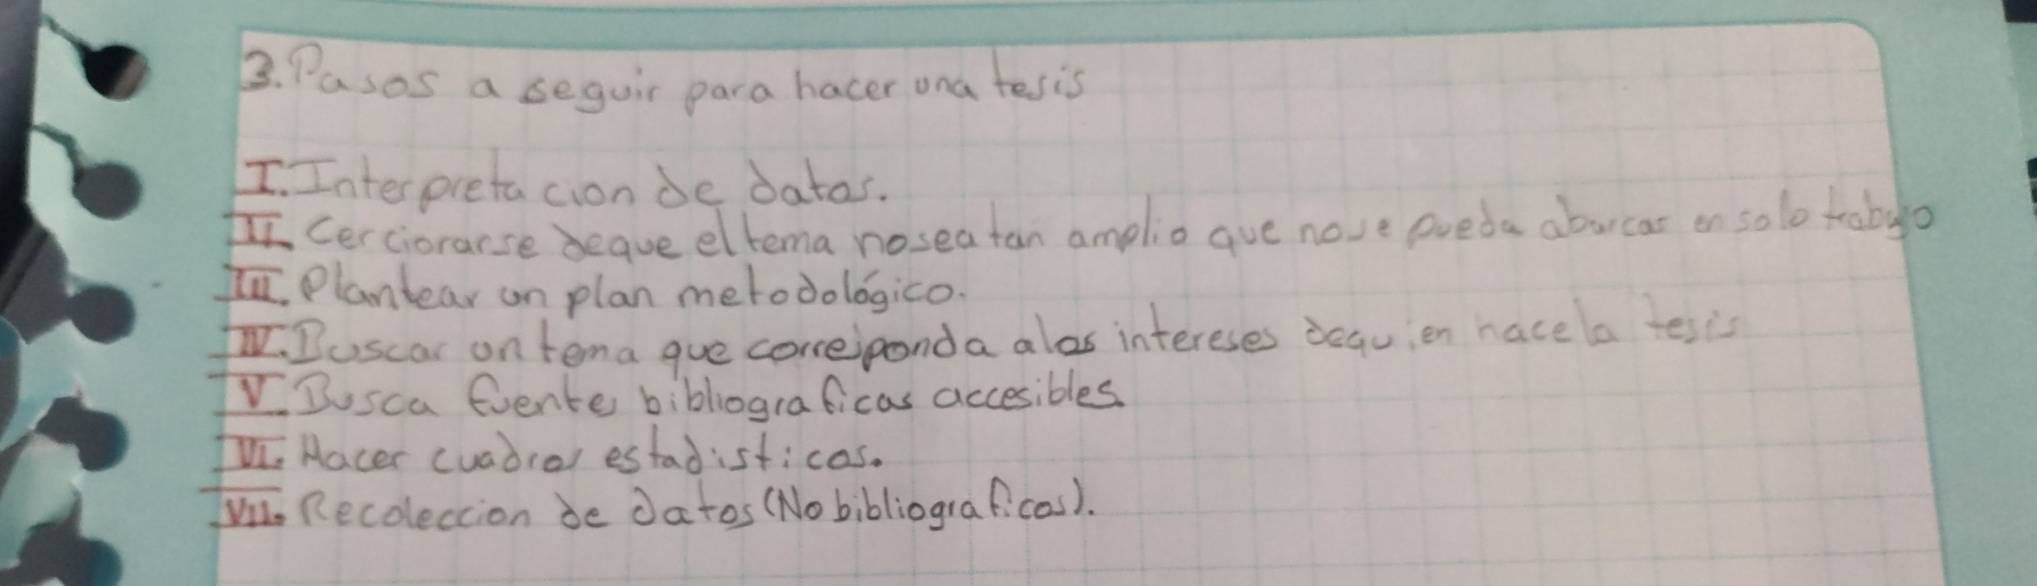 3. Pasos a seguir para hacer una tesis
I. Interpretacion de datos.
II. Cerciorarse deque el tema nosea tan amplio que nose pueda abarcar en solo trabajo
III. Plantear un plan metodológico.
IV. Buscar un tema que corresponda alos intereses dequien hacela tesis
V. Busca fuentes bibliograficas accesibles.
VI. Hacer cuadros estadisticos.
VII. Recoleccion de datos (No bibliograficos).